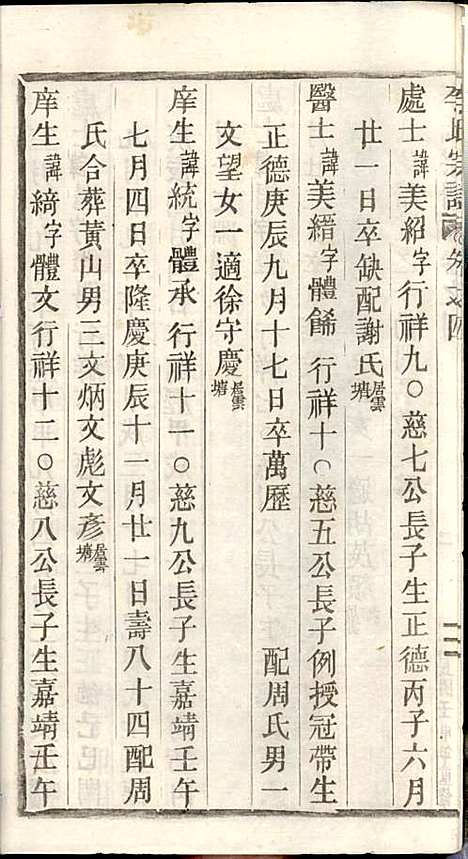 李氏宗譜 卷之四
處士諱美紹字行祥九〇慈七公長子生正德丙子六月
廿一日卒缺配謝氏居雲塘
醫士諱美縉字體餙行祥十〇慈五公長子例授冠帶生
正德庚辰九月十七日卒萬歷 配周氏男一
文望女一適徐守慶居雲塘
庠生諱統字體承行祥十一〇慈九公長子生嘉靖壬午
七月四日卒隆慶庚辰十一月廿一日壽八十四配周
氏合葬黃山男三文炳文彪文彥居雲塘
庠生諱綺字體文行祥十二〇慈八公長子生嘉靖壬午